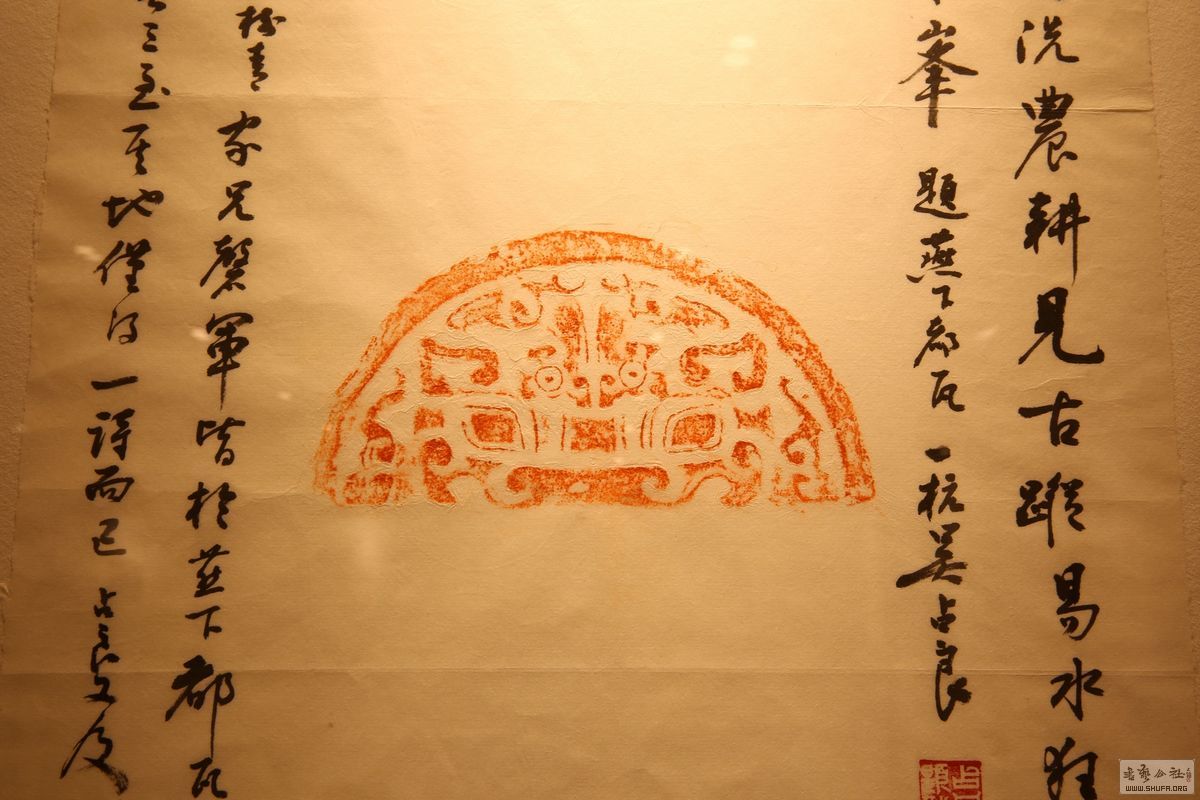 洗農耕見古蹤易水狂
峯 題燕下都瓦 一杭吴占良
青家兄磬軍皆於燕下都瓦
三至其地僅得一詩而已 占良又及
書藝公社
WWW.SHUFA.ORG